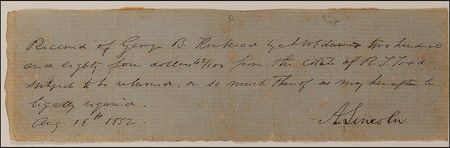 Received of George B. Kinkead by A. W. two hundred
and eighty four dollars 42/100 from the estate of R. S. Todd
subject to be returned, or so much thereof as may hereafter be
legally required.
Aug. 15th 1852. A. Lincoln